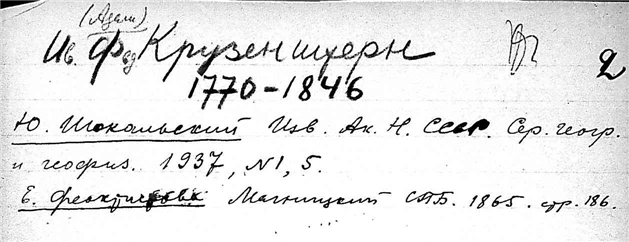 (Адам)
Ив. Фед Крузенштерн 2
1770-1846
Ю. Шокальский Изв. Ак. Н. СССР. Сер. геогр.
и геофиз. 1937, N1, 5.
Е. Феоктистов Магницкий СПБ. 1865. стр. 186.